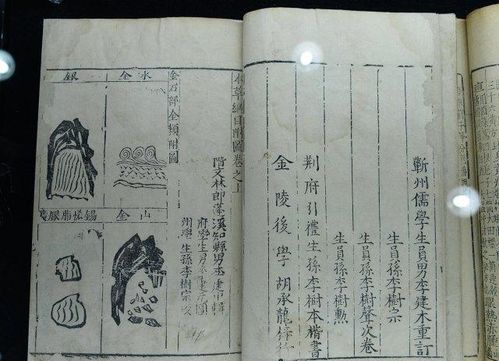 蘄州儒學生員男李建木重訂
生員孫李樹宗
生員孫李樹聲次卷
生員孫李樹勳
荆府引禮生孫李樹本楷書
金陵後學胡承龍梓行
本草綱目附圖卷之上
階文林郎蓬溪知縣男李建中輯
府學生員男李建元圖
州學生孫李樹宗校
金石部金類附圖
水金
山金
銀
錫恡脂銀